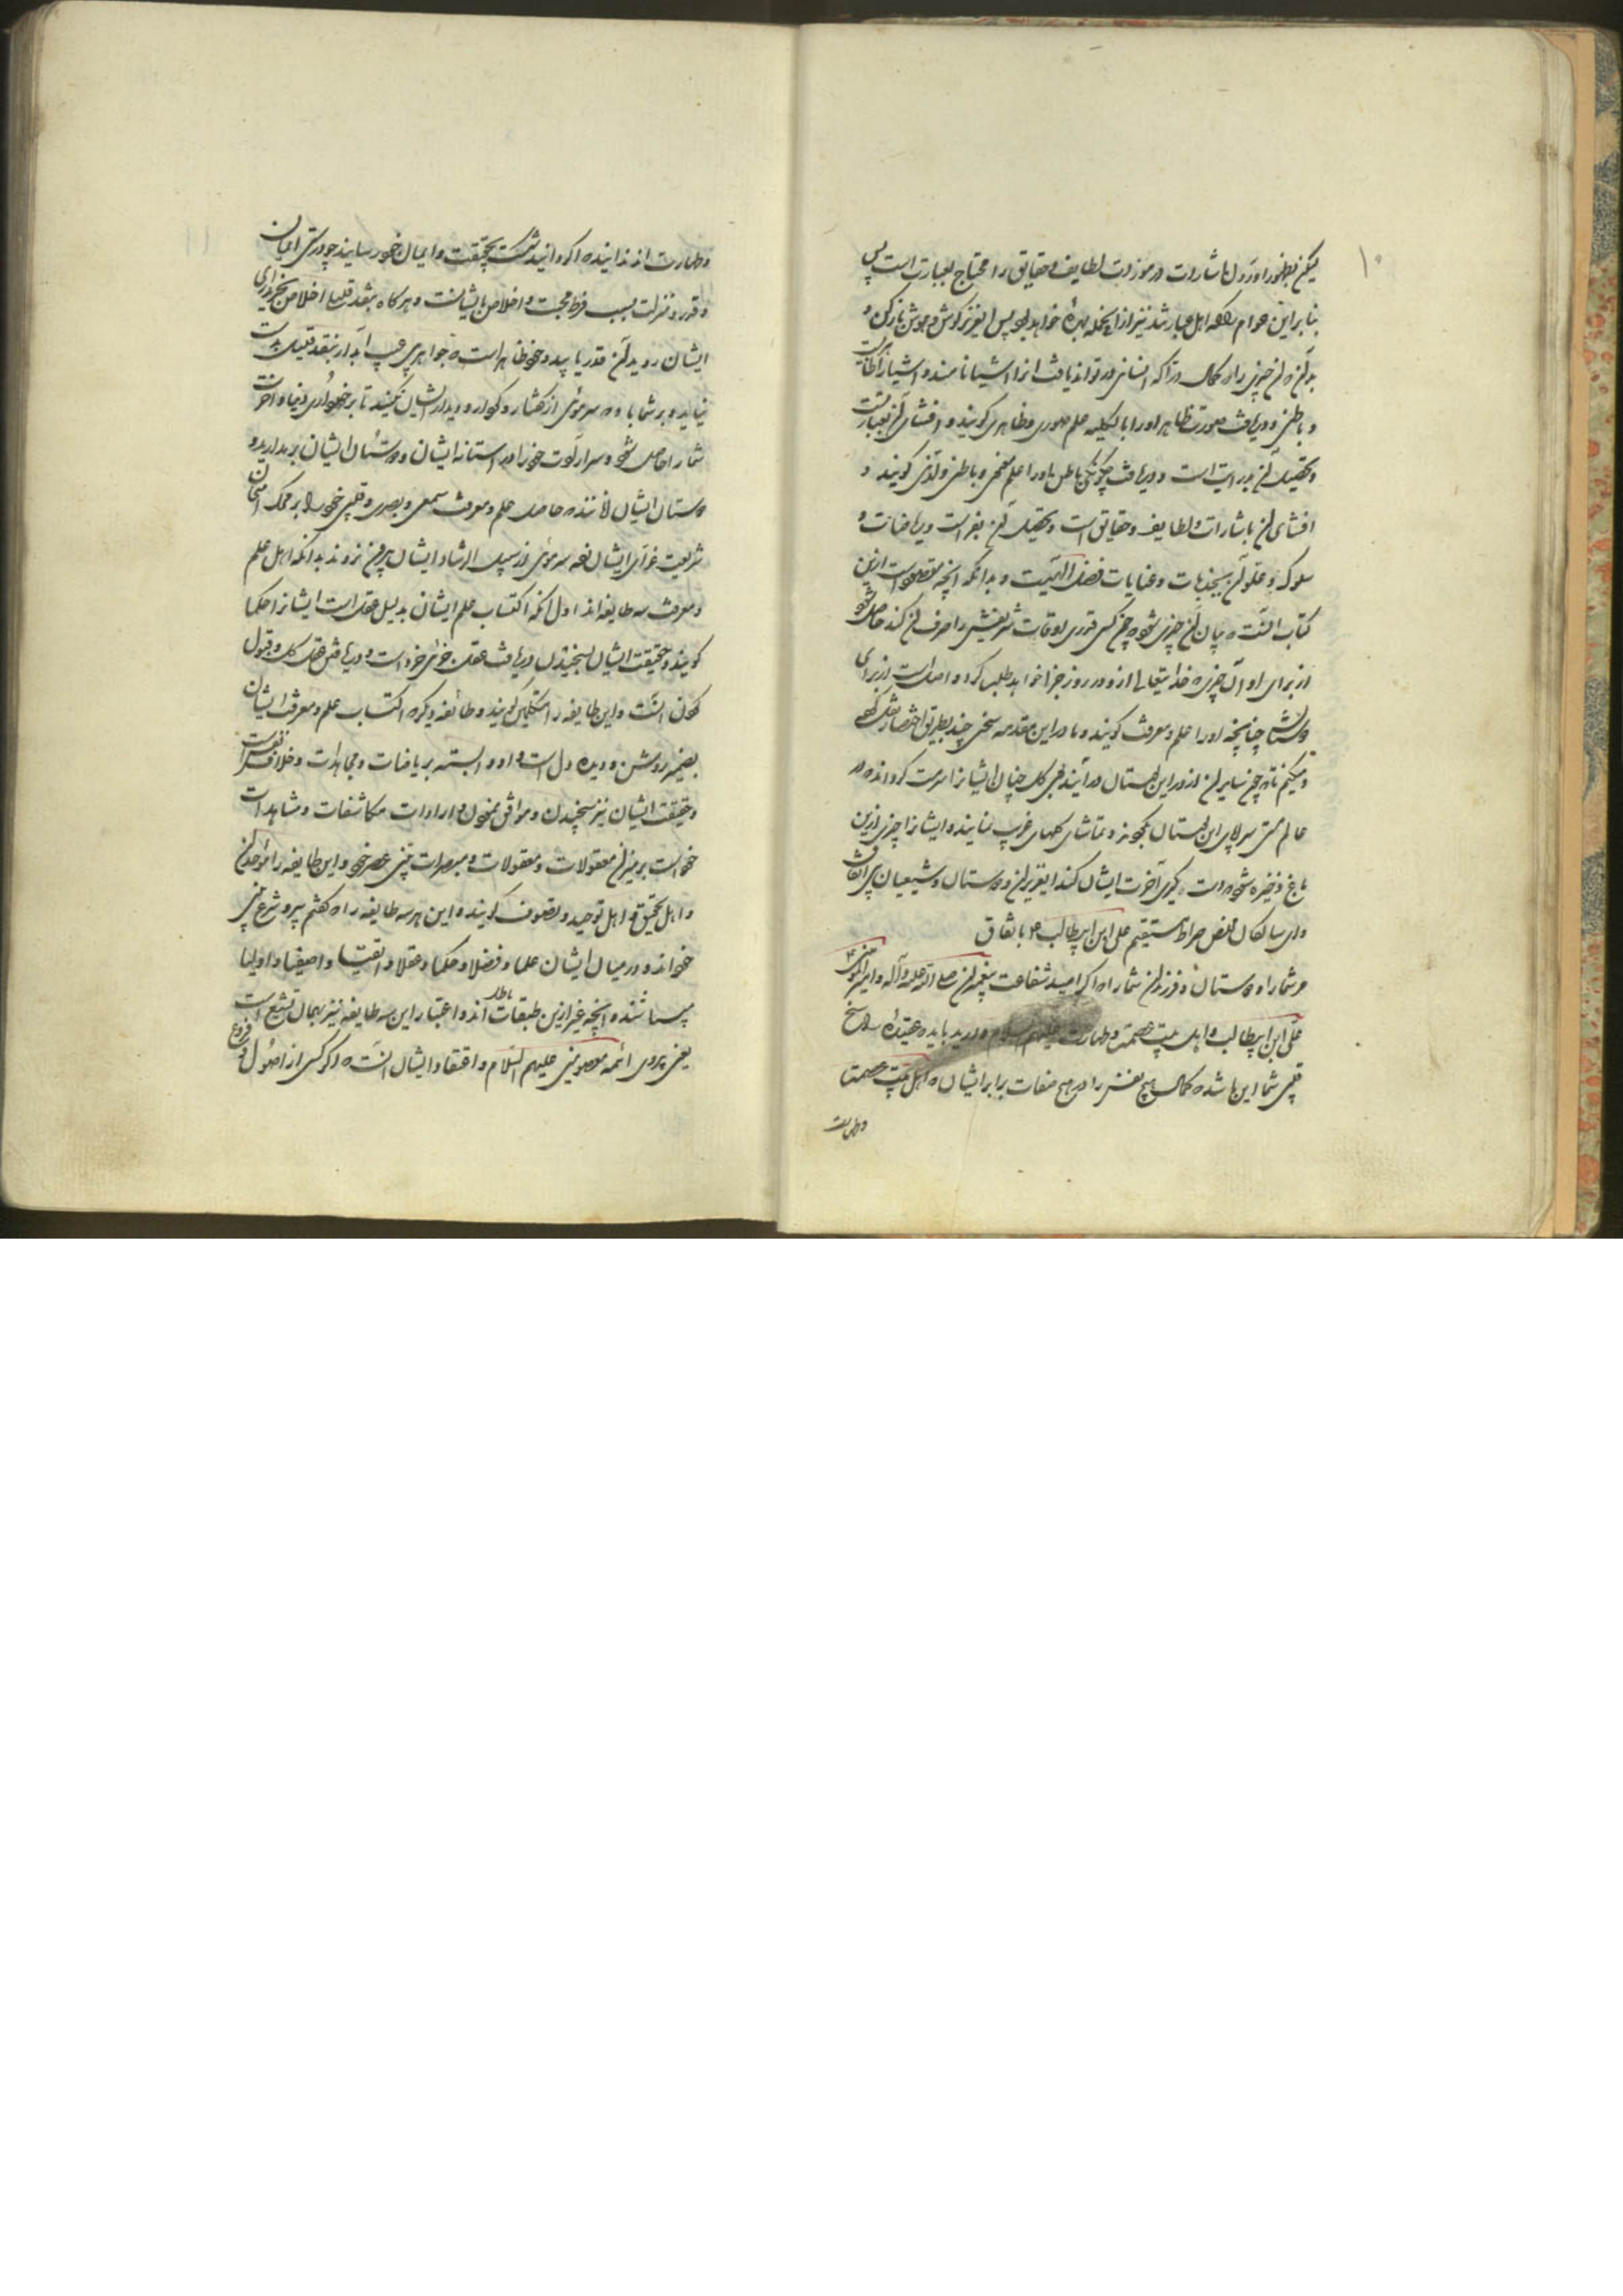 ۱۰
لیکن بظهور آوردن اشارات و رموزات لطایف و حقایق را محتاج بعبارت است پس
بنا بر این عوام که اهل عبارتند نیز از آنجمله بهره خواهد بود پس ای عزیز گوش و هوش باز کن و
بدان که آن چیزی را در کمال ادراکه انسانی در تواند یافت آنرا اشیا نامند و اشیا را ظاهریست
و باطنی و دریافت صورت ظاهر او را بالکلیه علم صوری و ظاهری گویند و افشای آن بعبارتست
و تحصیل آن بدرایت است و دریافت چگونگی باطن او را علم معنی و باطنی و لدنی گویند و
افشای آن باشارات و لطایف و حقایق است و تحصیل آن بفراست و ریاضات و
سلوک و علو آن بجذبات و عنایات فضل الهیست و بدانکه آنچه مقصود است ازین
کتاب آنست که بیان آن چیزی شود که چون کسی قدری اوقات شریفش را صرف آن کند حاصل شود
از برای او آن چیزی که خدایتعالی ازو در روز جزا خواهد طلب کرد و اصل است از برای
دوستانش چنانچه او را علم و معرفت گویند و ما در این مقدمه سخنی چند بطریق اختصار نقل کنیم
و میکنم تا که چون سایران ازو در این بوستان در آیند کل چینان ایشان را سرمست گرداند و در
عالم مستی سراپای این بوستان بگردند و تماشای گلهای غریب نمایند و ایشان را چیزی ازین
باغ ذخیره شود و دستگیری آخرت ایشان کند ای عزیزان و دوستان و شیعیان پر اتفاق
و ای سالکان صراط مستقیم علی ابن ابیطالب باتفاق
مر شما را و دوستان و فرزندان شما را که اگر امید شفاعت پیغمبران صلی الله علیه و آله و امیرالمؤمنین
علی ابن ابیطالب و اهل بیت عصمت و طهارت علیهم السلام دارید باید که عقیده راسخ
قلبی شما این باشد که کمال هیچ نفس را در هیچ صفات برابر ایشان که اهل بیت عصمت
و طهارت
و طهارت اند ندانید که اگر دانید شرکت بحقیقت و ایمان خود رسانید چه درستی ایمان
و قدر و منزلت بسبب فرط محبت و اخلاص بایشانست و هر گاه بنقد قلب اخلاص خریداری
ایشان روید آن قدر یابید و خود ظاهر است که جواهری چه آبدار بنقد قلیل بدست
نیاید و بر شما باد که سر موئی از گفتار و کردار و دیدار ایشان نگیند تا برخورداری دنیا و آخرت
شما را حاصل شود و سر ارادت خود را از آستانه ایشان و دوستان ایشان بر ندارید و
دوستان ایشان آنانند که حاصل علم و معرفت سمعی و بصری و قلبی خود را بر محک امتحان
شریعت غرای ایشان زده سر موئی از سبیل ارشاد ایشان بیرون نروند بدانکه اهل علم
و معرفت سه طایفه اند اول آنکه اکتساب علم ایشان بدلیل عقل است ایشان را حکما
گویند و حقیقت ایشان بسنجیدن دریافت عقل جزئی خود است و دریافتن عقل کل و قبول
کردن آنست و این طایفه را متکلمین گویند و طائفه دیگر که اکتساب علم و معرفت ایشان
بضمیر روشن و دیده دل است و او وابسته بریاضات و مجاهدات و خلاف نفس است
و حقیقت ایشان نیز سنجیدن و موافق نمودن واردات مکاشفات و مشاهدات
خود است بر میزان معقولات و منقولات و مبصرات نبی عصر خود و این طایفه را موحدان
و اهل تحقیق و اهل توحید و تصوف گویند و این هر سه طایفه را که گفتم پیرو شرع نبی
خوانند و در میان ایشان علما و فضلا و حکما و عقلا و اتقیا و اصفیا و اولیا
پیدا شدند و آنچه غیر ازین طبقات اند باطل و اعتبار این سه طایفه نیز بهمان تشیع است
یعنی پیروی ائمه معصومین علیهم السلام و اعتقاد ایشان آنست که اگر کسی از اصول و فروع